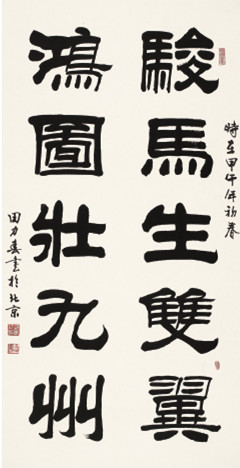 時在甲午年初春
駿馬生雙翼
鴻圖壯九州
田力書於北京